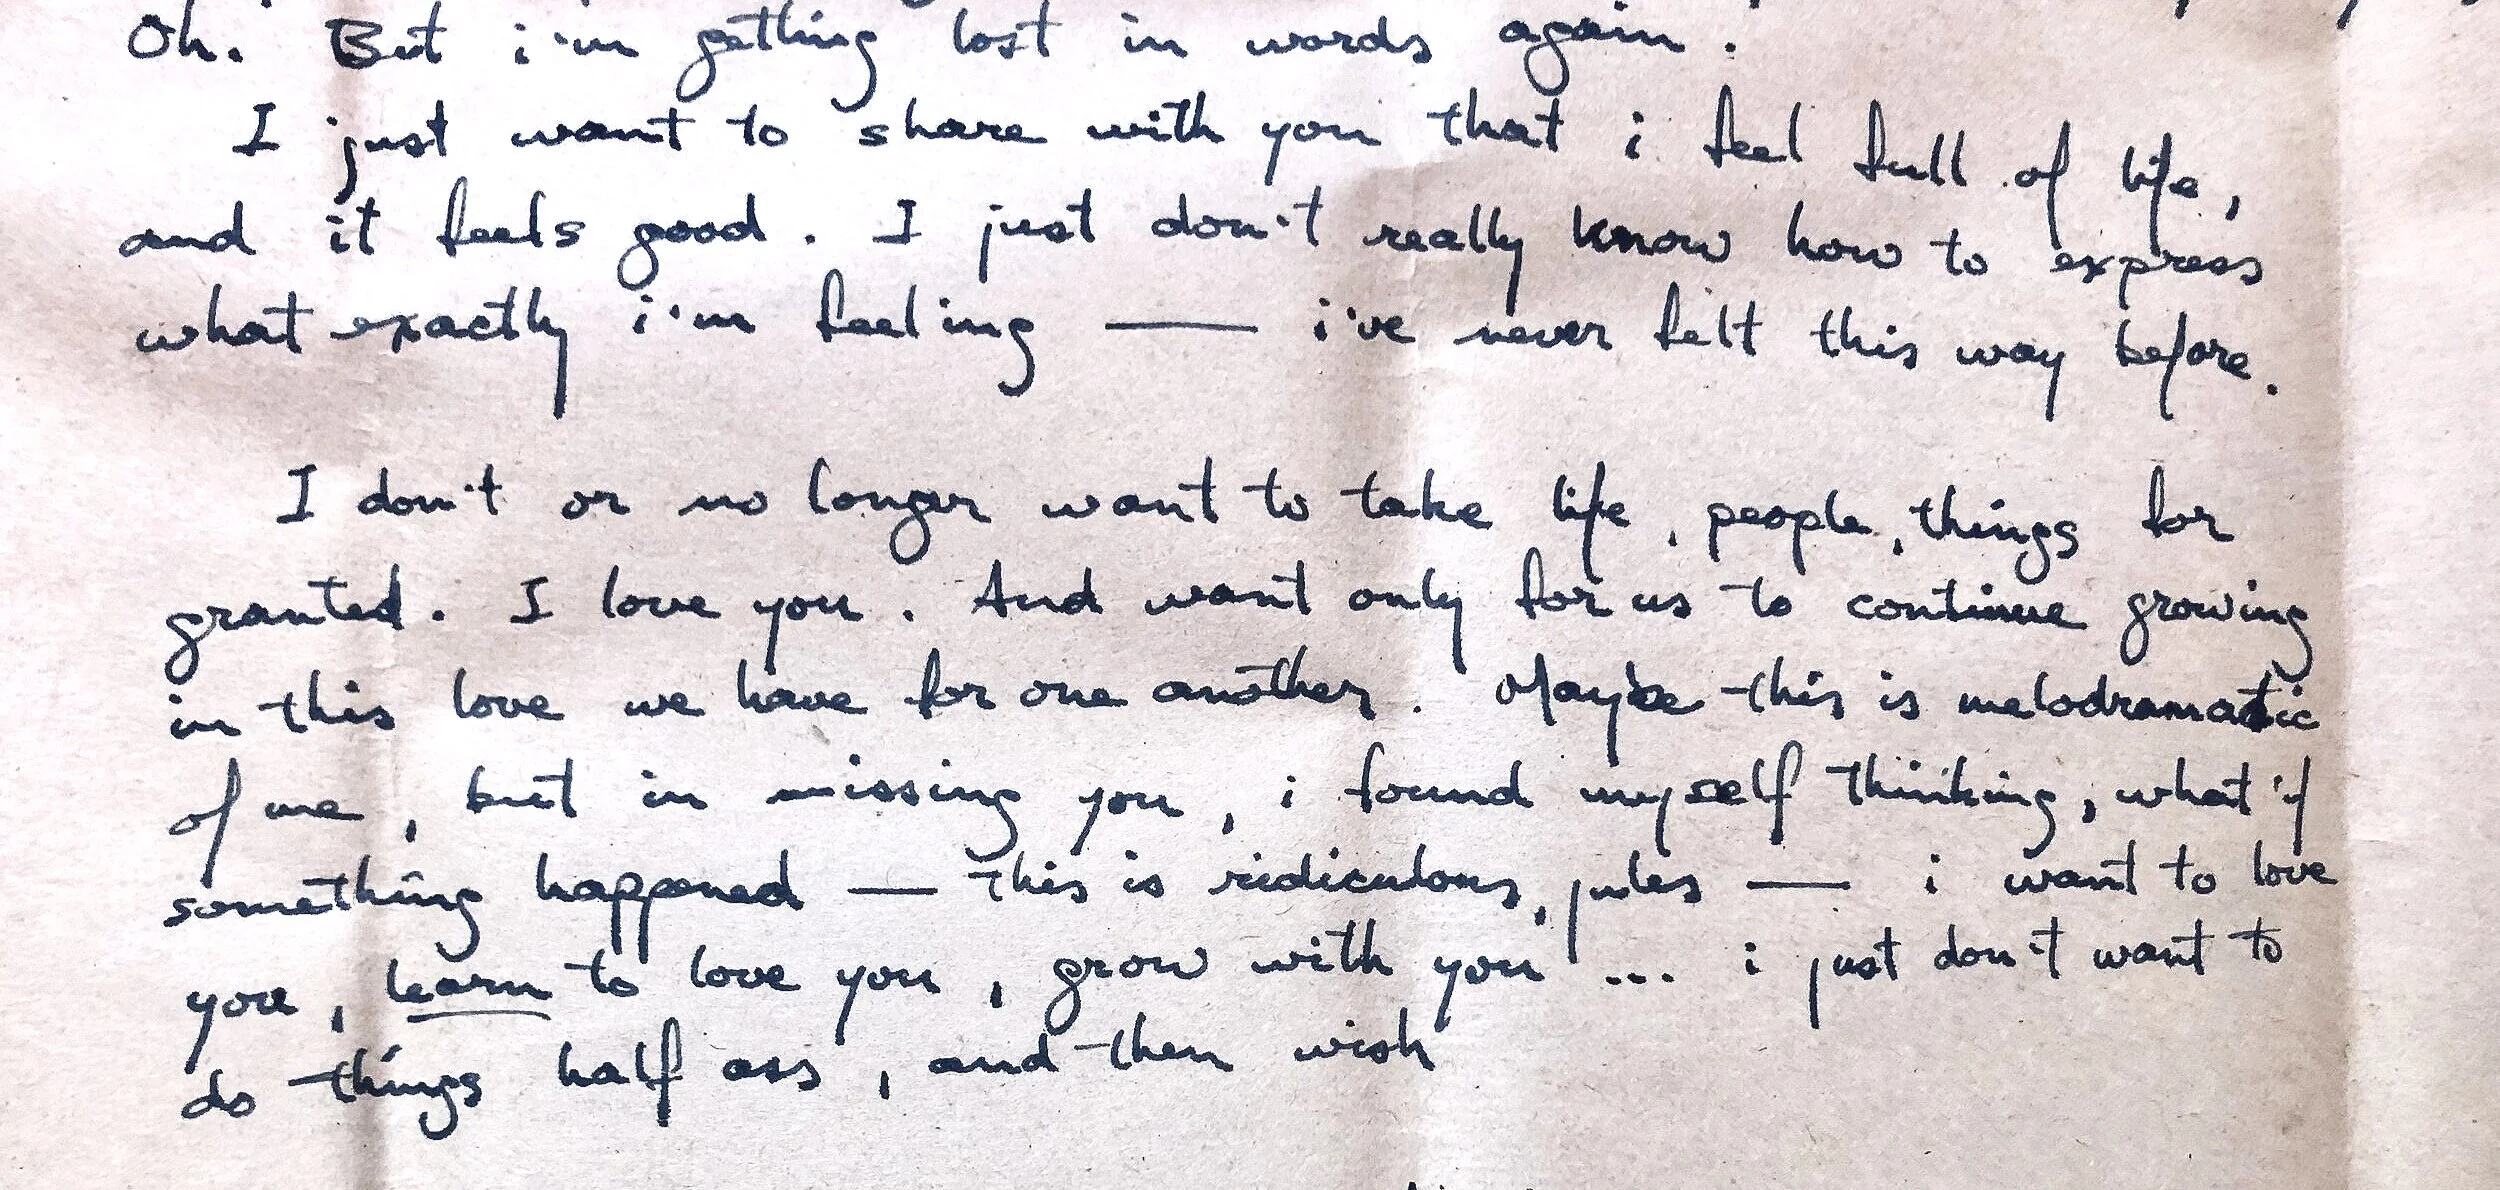 Oh. But i'm getting lost in words again.
I just want to share with you that i feel full of life,
and it feels good. I just don't really know how to express
what exactly i'm feeling — i've never felt this way before.
I don't or no longer want to take life, people, things for
granted. I love you. And want only for us to continue growing
in this love we have for one another. Maybe this is melodramatic
of me, but in missing you, i found myself thinking, what if
something happened — this is ridiculous, jules — i want to love
you, learn to love you, grow with you ... i just don't want to
do things half ass, and then wish